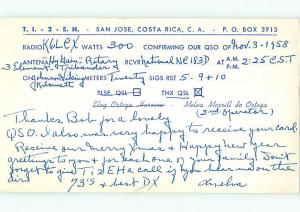 T. I. - 2 - E H. - SAN JOSE, COSTA RICA, C. A. - P. O. BOX 3913
RADIO K6LCX WATTS 300 CONFIRMING OUR QSO OF Nov. 3-1958
ANTENNA Hy-Gain-Rotary RCVR National NC183D AT 2:25 C.S.T
3 Element Tribander
ON Johnson Viking METERS Twenty SIGS RST 5-9+10
Kilowatt
PLSE QSL TNX QSL
Eloy Ortega Melva Morrill de Ortega
(2nd Operator)
Thanks Bob for a lovely
QSO. I also was very happy to receive your card.
Receive our Merry Xmas & Happy New Year
greetings to you & for each one of your family. Don't
forget to give TI2EH a call if you hear me on the
air.
73's & best DX Melva